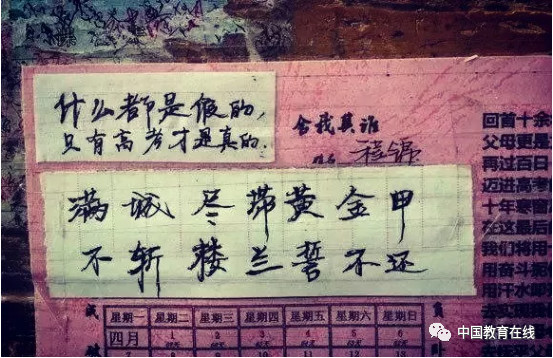 什么都是假的，
只有高考才是真的.
舍我其谁
姓名 程锦
满城尽带黄金甲
不斩楼兰誓不还
回首十余
父母更是
再过百日
迈进高考
十年寒窗
在这最后
我们将用
用奋斗扼
用汗水即
去实现我
星期一 星期二 星期三 星期四 星期五 星期六 星期日
四月 1 2 3 4 5 6
中国教育在线